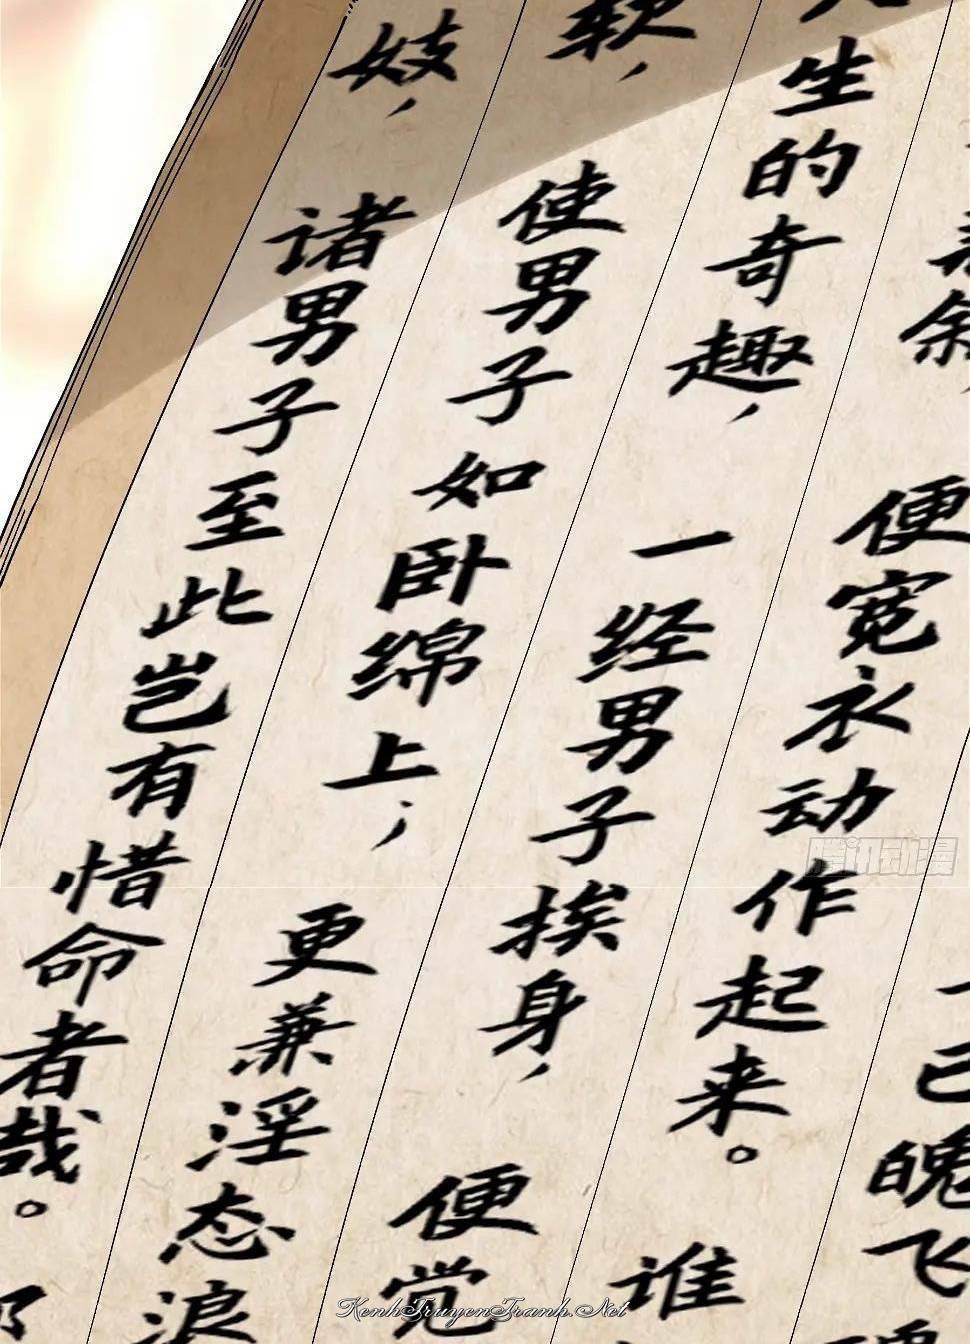 已魄飞
亲
余,便宽衣动作起来。谁
生的奇趣,一经男子挨身,便觉
软,使男子如卧绵上;更兼淫态浪
妓,诸男子至此岂有惜命者哉。
腾讯动漫
KenhTruyenTranh.Net